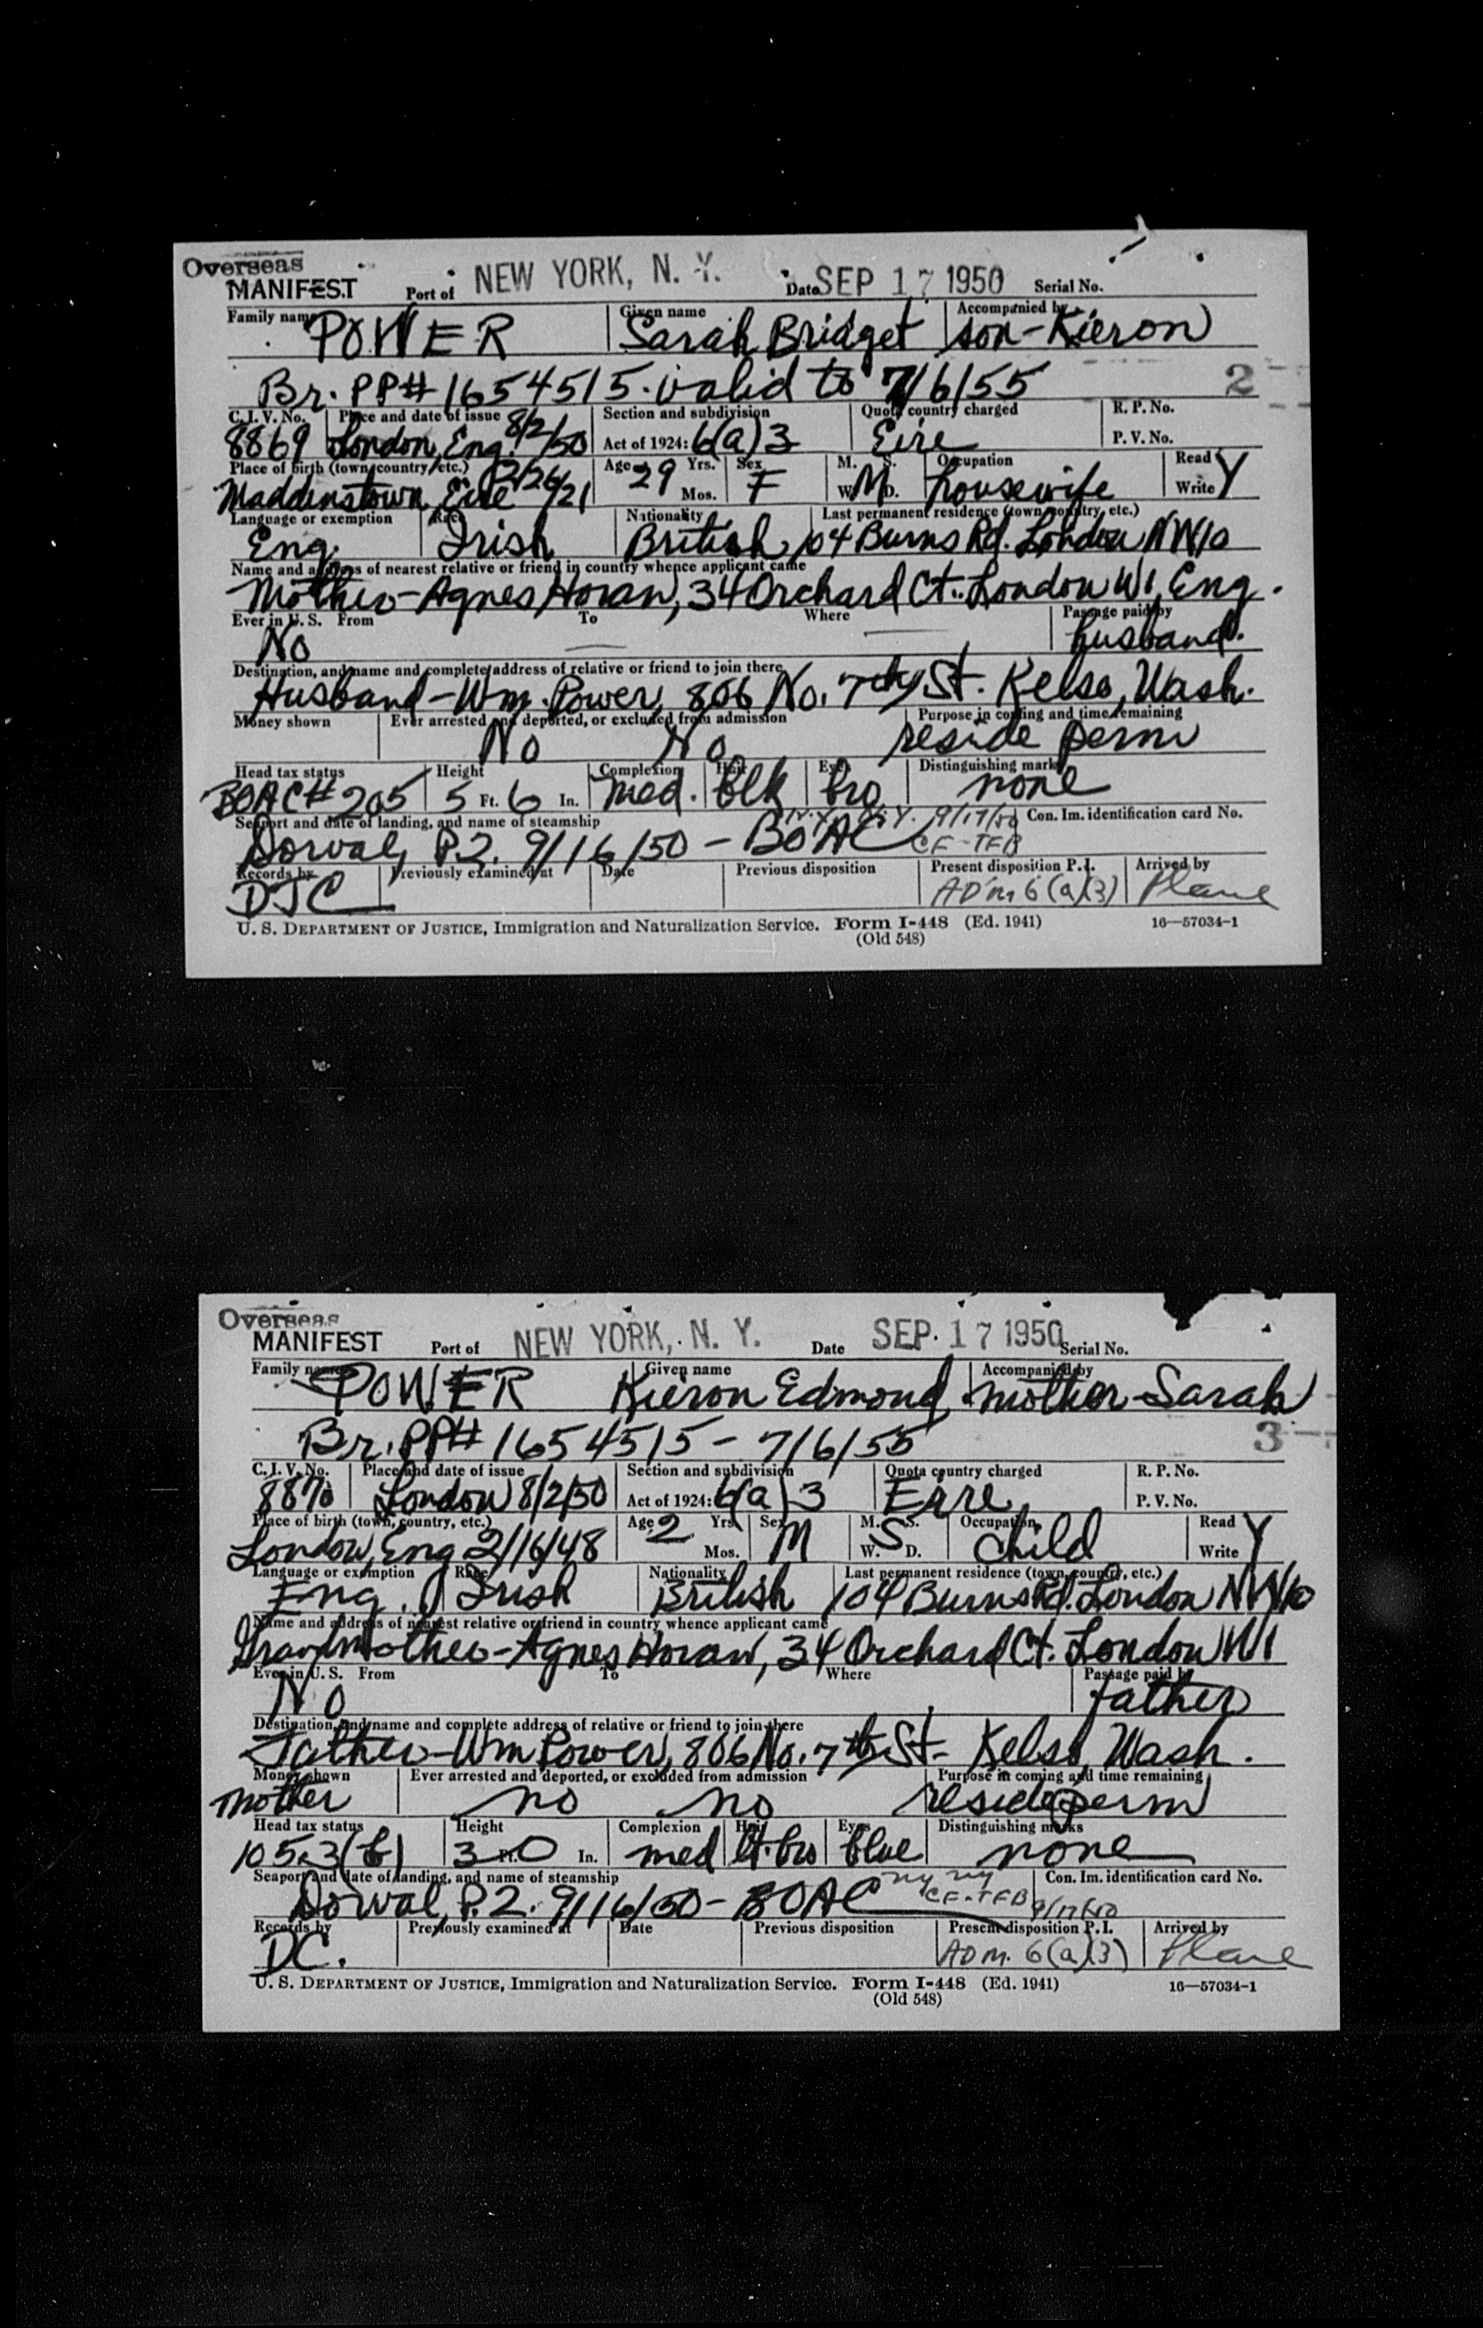 Overseas
MANIFEST Port of NEW YORK, N. Y. Date SEP 17 1950 Serial No.
Family name Given name Accompanied by
POWER Sarah Bridget son-Kieron
Br. PP# 1654515. valid to 7/6/55 2
C. I. V. No. Place and date of issue 8/2/50 Section and subdivision Quota country charged R. P. No.
8869 London, Eng. Act of 1924: 6(a)3 Eire P. V. No.
Place of birth (town, country, etc.) Age 29 Yrs. Sex M. S. Occupation Read Y
Maddenstown, Eire 2/26/21 Mos. F W. M D. housewife Write
Language or exemption Race Nationality Last permanent residence (town, country, etc.)
Eng. Irish British 104 Burns Rd. London NW10
Name and address of nearest relative or friend in country whence applicant came
Mother-Agnes Horan, 34 Orchard Ct. London W1, Eng.
Ever in U. S. From To Where Passage paid by
No husband.
Destination, and name and complete address of relative or friend to join there
Husband-Wm. Power, 806 No. 7th St. Kelso, Wash.
Money shown Ever arrested and deported, or excluded from admission Purpose in coming and time remaining
No No reside perm
Head tax status Height Complexion Hair Eyes Distinguishing marks
BOAC# 205 5 Ft. 6 In. med. blk bro none
Seaport and date of landing, and name of steamship N.Y. N.Y. 9/17/50 Con. Im. identification card No.
Dorval, P.2. 9/16/50 - BOAC CF-TFB
Records by Previously examined at Date Previous disposition Present disposition P. I. Arrived by
DJC ADm 6(a)(3) Plane
U. S. DEPARTMENT OF JUSTICE, Immigration and Naturalization Service. Form I-448 (Ed. 1941) 16—57034-1
(Old 548)
Overseas
MANIFEST Port of NEW YORK, N. Y. Date SEP. 17 1950 Serial No.
Family name Given name Accompanied by
POWER Kieron Edmond mother-Sarah
Br. PP# 1654515 - 7/6/55 3
C. I. V. No. Place and date of issue Section and subdivision Quota country charged R. P. No.
8870 London 8/2/50 Act of 1924: 6(a)3 Eire P. V. No.
Place of birth (town, country, etc.) Age 2 Yrs. Sex M. S. Occupation Read Y
London, Eng 2/16/48 Mos. M W. S D. child Write
Language or exemption Race Nationality Last permanent residence (town, country, etc.)
Eng. Irish British 104 Burns Rd. London NW10
Name and address of nearest relative or friend in country whence applicant came
Grandmother-Agnes Horan, 34 Orchard Ct. London W1
Ever in U. S. From To Where Passage paid by
No father
Destination, and name and complete address of relative or friend to join there
Father-Wm Power, 806 No. 7th St- Kelso, Wash.
Money shown Ever arrested and deported, or excluded from admission Purpose in coming and time remaining
mother no no reside perm
Head tax status Height Complexion Hair Eyes Distinguishing marks
105.3(b) 3 Ft. 0 In. med lt. bro blue none
Seaport and date of landing, and name of steamship ny ny Con. Im. identification card No.
Dorval, P.2. 9/16/50 - BOAC CF-TFB 9/17/50
Records by Previously examined at Date Previous disposition Present disposition P. I. Arrived by
DC. ADm. 6(a)(3) Plane
U. S. DEPARTMENT OF JUSTICE, Immigration and Naturalization Service. Form I-448 (Ed. 1941) 16—57034-1
(Old 548)